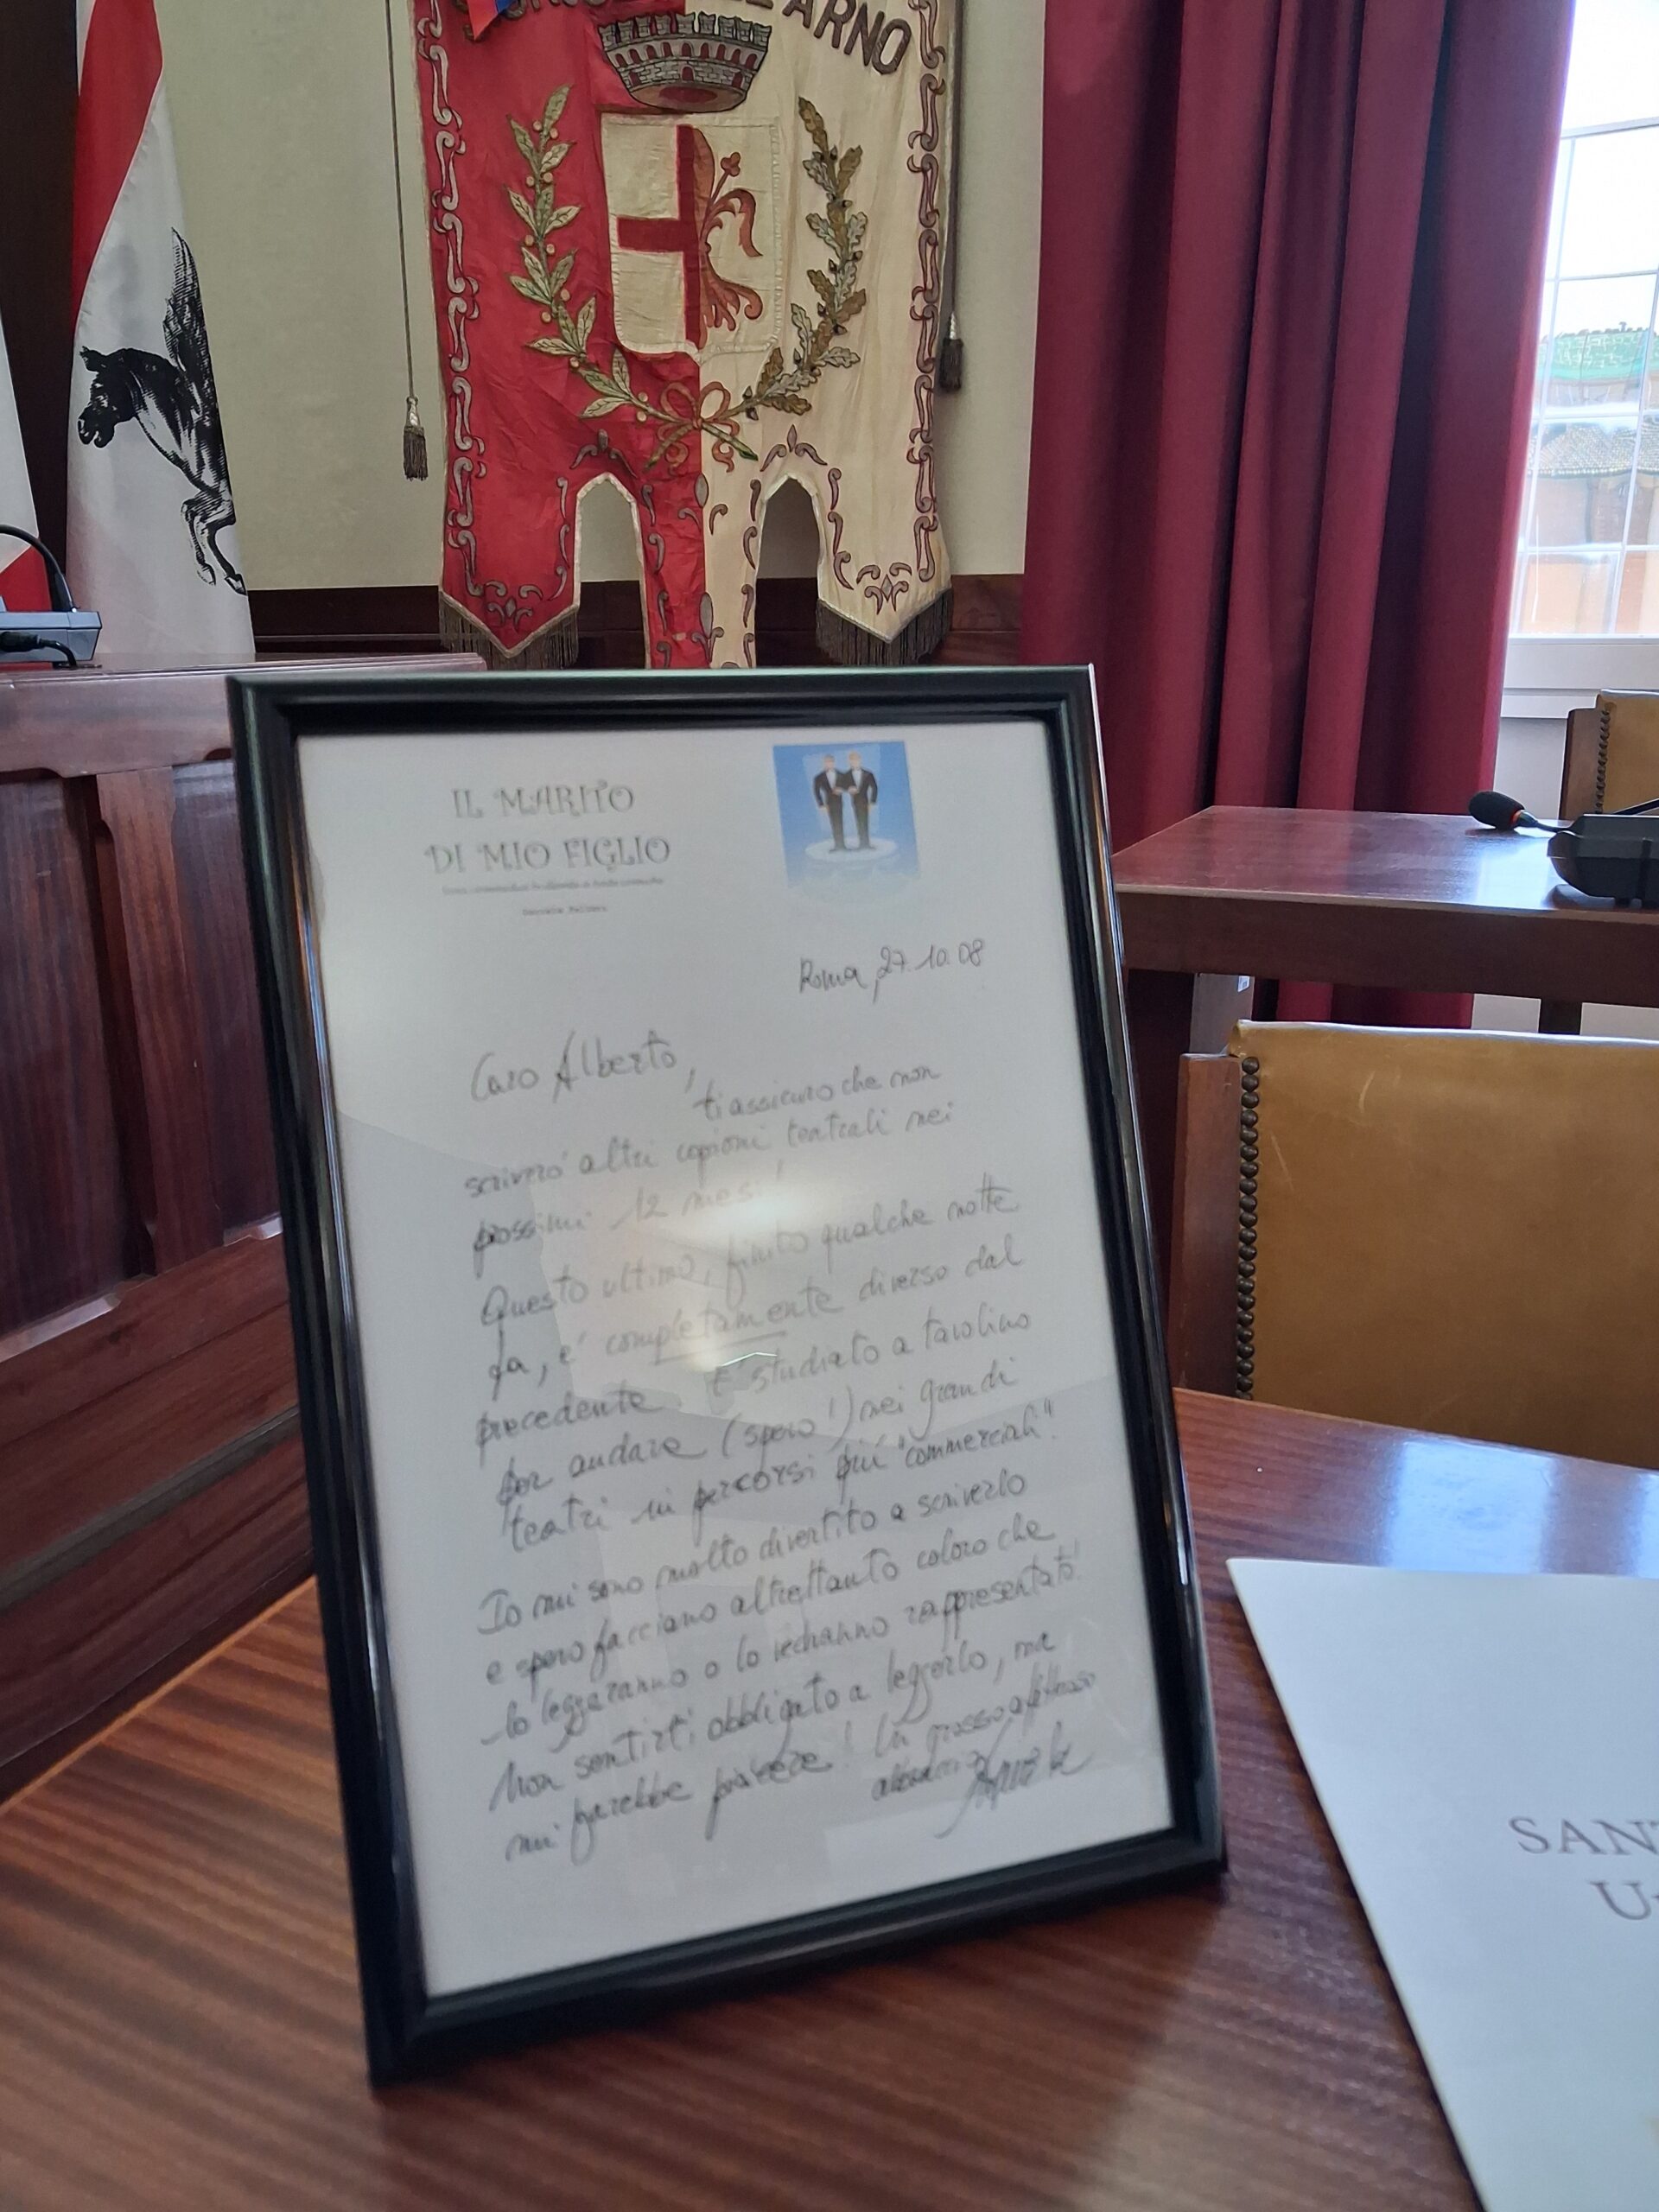 ARNO
IL MARITO
DI MIO FIGLIO
Roma, 27.10.08
Caro Alberto,
ti assicuro che non
scriverò altri copioni teatrali nei
prossimi 12 mesi!
Questo ultimo, finito qualche notte
fa, e' completamente diverso dal
precedente. E' studiato a tavolino
per andare (spero!) nei grandi
teatri in percorsi piú "commerciali".
Io mi sono molto divertito a scriverlo
e spero facciano altrettanto coloro che
lo leggeranno o lo vedranno rappresentato!
Non sentirti obbligato a leggerlo, ma
mi farebbe piacere! Un grosso affettuoso
abbraccio
SAN